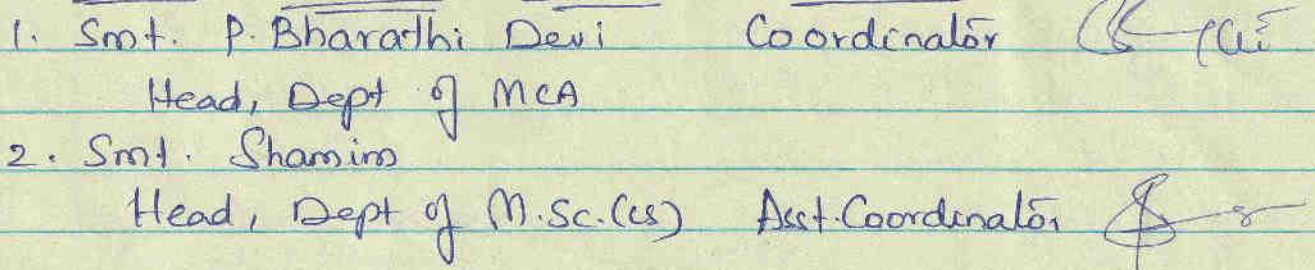 1. Smt. P. Bharathi Devi Coordinator
Head, Dept of MCA
2. Smt. Shamim
Head, Dept of M.Sc.(CS) Asst. Coordinator